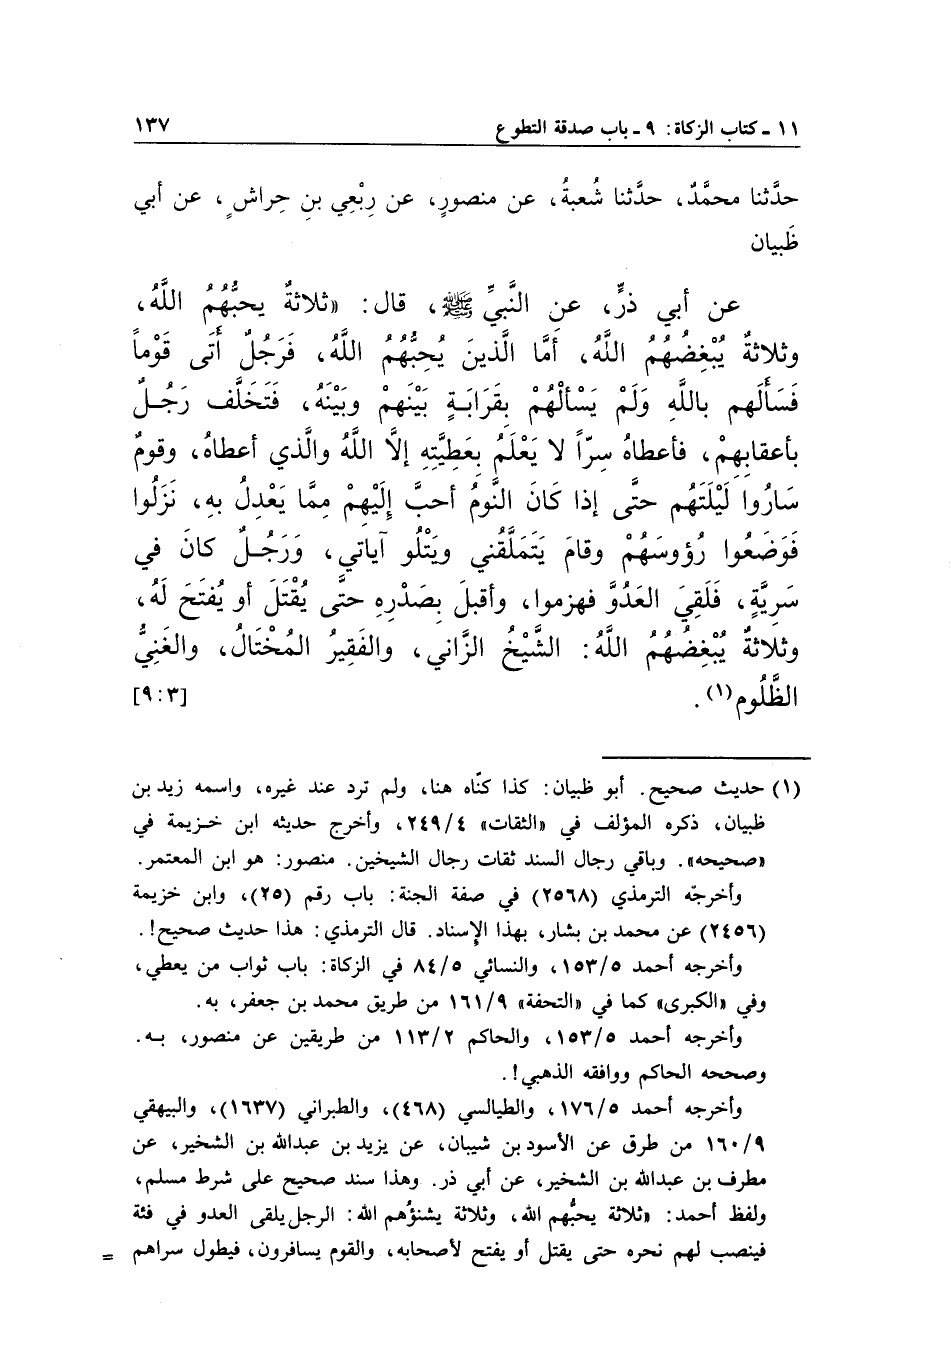 ١١ ـ كتاب الزكاة: ٩ ـ باب صدقة التطوع ١٣٧
حدَّثنا محمَّدٌ، حدَّثنا شُعبةُ، عن منصورٍ، عن رِبْعِي بنِ حِراشٍ، عن أبي
ظَبيان
عن أبي ذرٍّ، عن النَّبيِّ ﷺ، قال: «ثلاثةٌ يحبُّهُمُ اللَّهُ،
وثلاثةٌ يُبْغِضُهُمُ اللَّهُ، أمَّا الَّذينَ يُحِبُّهُمُ اللَّهُ، فَرَجُلٌ أَتَى قَوْماً
فَسَأَلَهم باللَّهِ وَلَمْ يَسْألْهُمْ بِقَرَابَةٍ بَيْنَهمْ وبَيْنَهُ، فَتَخَلَّف رَجُلٌ
بأعقابِهمْ، فأعطاهُ سِرّاً لا يَعْلَمُ بِعَطِيَّتِهِ إلَّا اللَّهُ والَّذي أعطاهُ، وقومٌ
سَارُوا لَيْلَتَهُم حتَّى إذا كَانَ النَّومُ أحبَّ إلَيْهِمْ مِمَّا يَعْدِلُ بِهِ، نَزَلُوا
فَوَضَعُوا رُؤوسَهُمْ وقامَ يَتَمَلَّقني ويَتْلُو آياتي، وَرَجُلٌ كانَ في
سَرِيَّةٍ، فَلَقِيَ العَدُوَّ فهزموا، وأقبلَ بِصَدْرِهِ حتَّى يُقْتَلَ أو يُفْتَحَ لَهُ،
وثلاثةٌ يُبْغِضُهُمُ اللَّهُ: الشَّيْخُ الزَّاني، والفَقِيرُ المُخْتَالُ، والغَنِيُّ
الظَّلُوم(١). [٩:٣]
(١) حديث صحيح. أبو ظبيان: كذا كنّاه هنا، ولم ترد عند غيره، واسمه زيد بن
ظبيان، ذكره المؤلف في «الثقات» ٢٤٩/٤، وأخرج حديثه ابن خزيمة في
«صحيحه». وباقي رجال السند ثقات رجال الشيخين. منصور: هو ابن المعتمر.
وأخرجّه الترمذي (٢٥٦٨) في صفة الجنة: باب رقم (٢٥)، وابن خزيمة
(٢٤٥٦) عن محمد بن بشار، بهذا الإسناد. قال الترمذي: هذا حديث صحيح!.
وأخرجه أحمد ١٥٣/٥، والنسائي ٨٤/٥ في الزكاة: باب ثواب من يعطي،
وفي «الكبرى» كما في «التحفة» ١٦١/٩ من طريق محمد بن جعفر، به.
وأخرجه أحمد ١٥٣/٥، والحاكم ١١٣/٢ من طريقين عن منصور، به.
وصححه الحاكم ووافقه الذهبي!.
وأخرجه أحمد ١٧٦/٥، والطيالسي (٤٦٨)، والطبراني (١٦٣٧)، والبيهقي
١٦٠/٩ من طرق عن الأسود بن شيبان، عن يزيد بن عبدالله بن الشخير، عن
مطرف بن عبدالله بن الشخير، عن أبي ذر. وهذا سند صحيح على شرط مسلم،
ولفظ أحمد: «ثلاثة يحبُّهم الله، وثلاثة يشنؤُهم الله: الرجل يلقى العدو في فئة
فينصب لهم نحره حتى يقتل أو يفتح لأصحابه، والقوم يسافرون، فيطول سراهم =